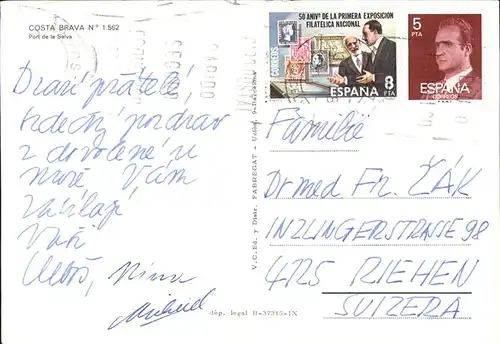 COSTA BRAVA N° 1.562
Port de la Selva
Drazí přátelé
srdečný pozdrav
z dovolené u
moře Vám
zasílají
Vaši
Nina
Michael
V.C.Ed. y Distr. FABREGAT - Urgel, 9-Barcelona
dép. legal B-37315-IX
50 ANIVº DE LA PRIMERA EXPOSICION
FILATELICA NACIONAL
CORREOS
ESPAÑA 8
PTA
5
PTA
ESPAÑA
CORREOS
Familie
Dr med Fr. ŽÁK
INZLINGERSTRASSE 98
4125 RIEHEN
SUIZERA